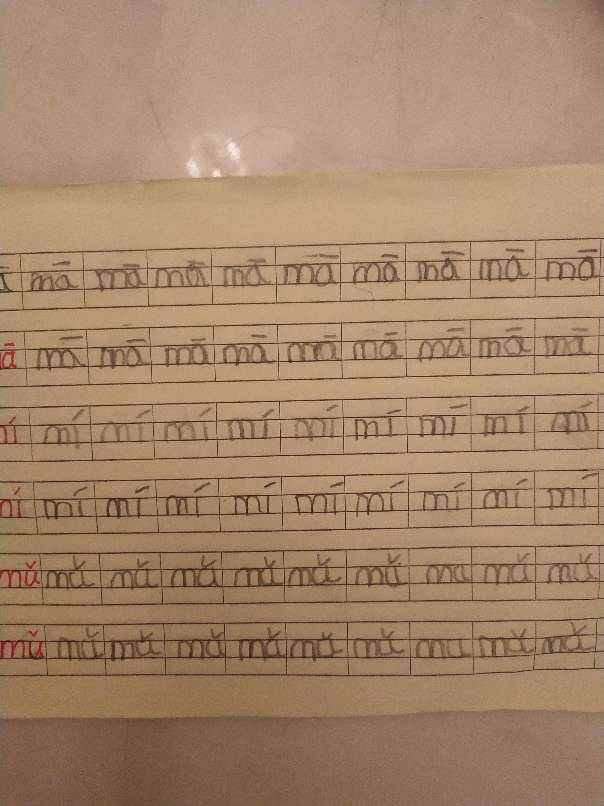 ā mā mā mā mā mā mā mā mā mā
ā mā mā mā mā mā mā mā mā mā
mí mí mí mí mí mí mí mí mí mí
mí mí mí mí mí mí mí mí mí mí
mǔ mǔ mǔ mǔ mǔ mǔ mǔ mu mǔ mǔ
mǔ mǔ mǔ mǔ mǔ mǔ mǔ mu mǔ mǔ